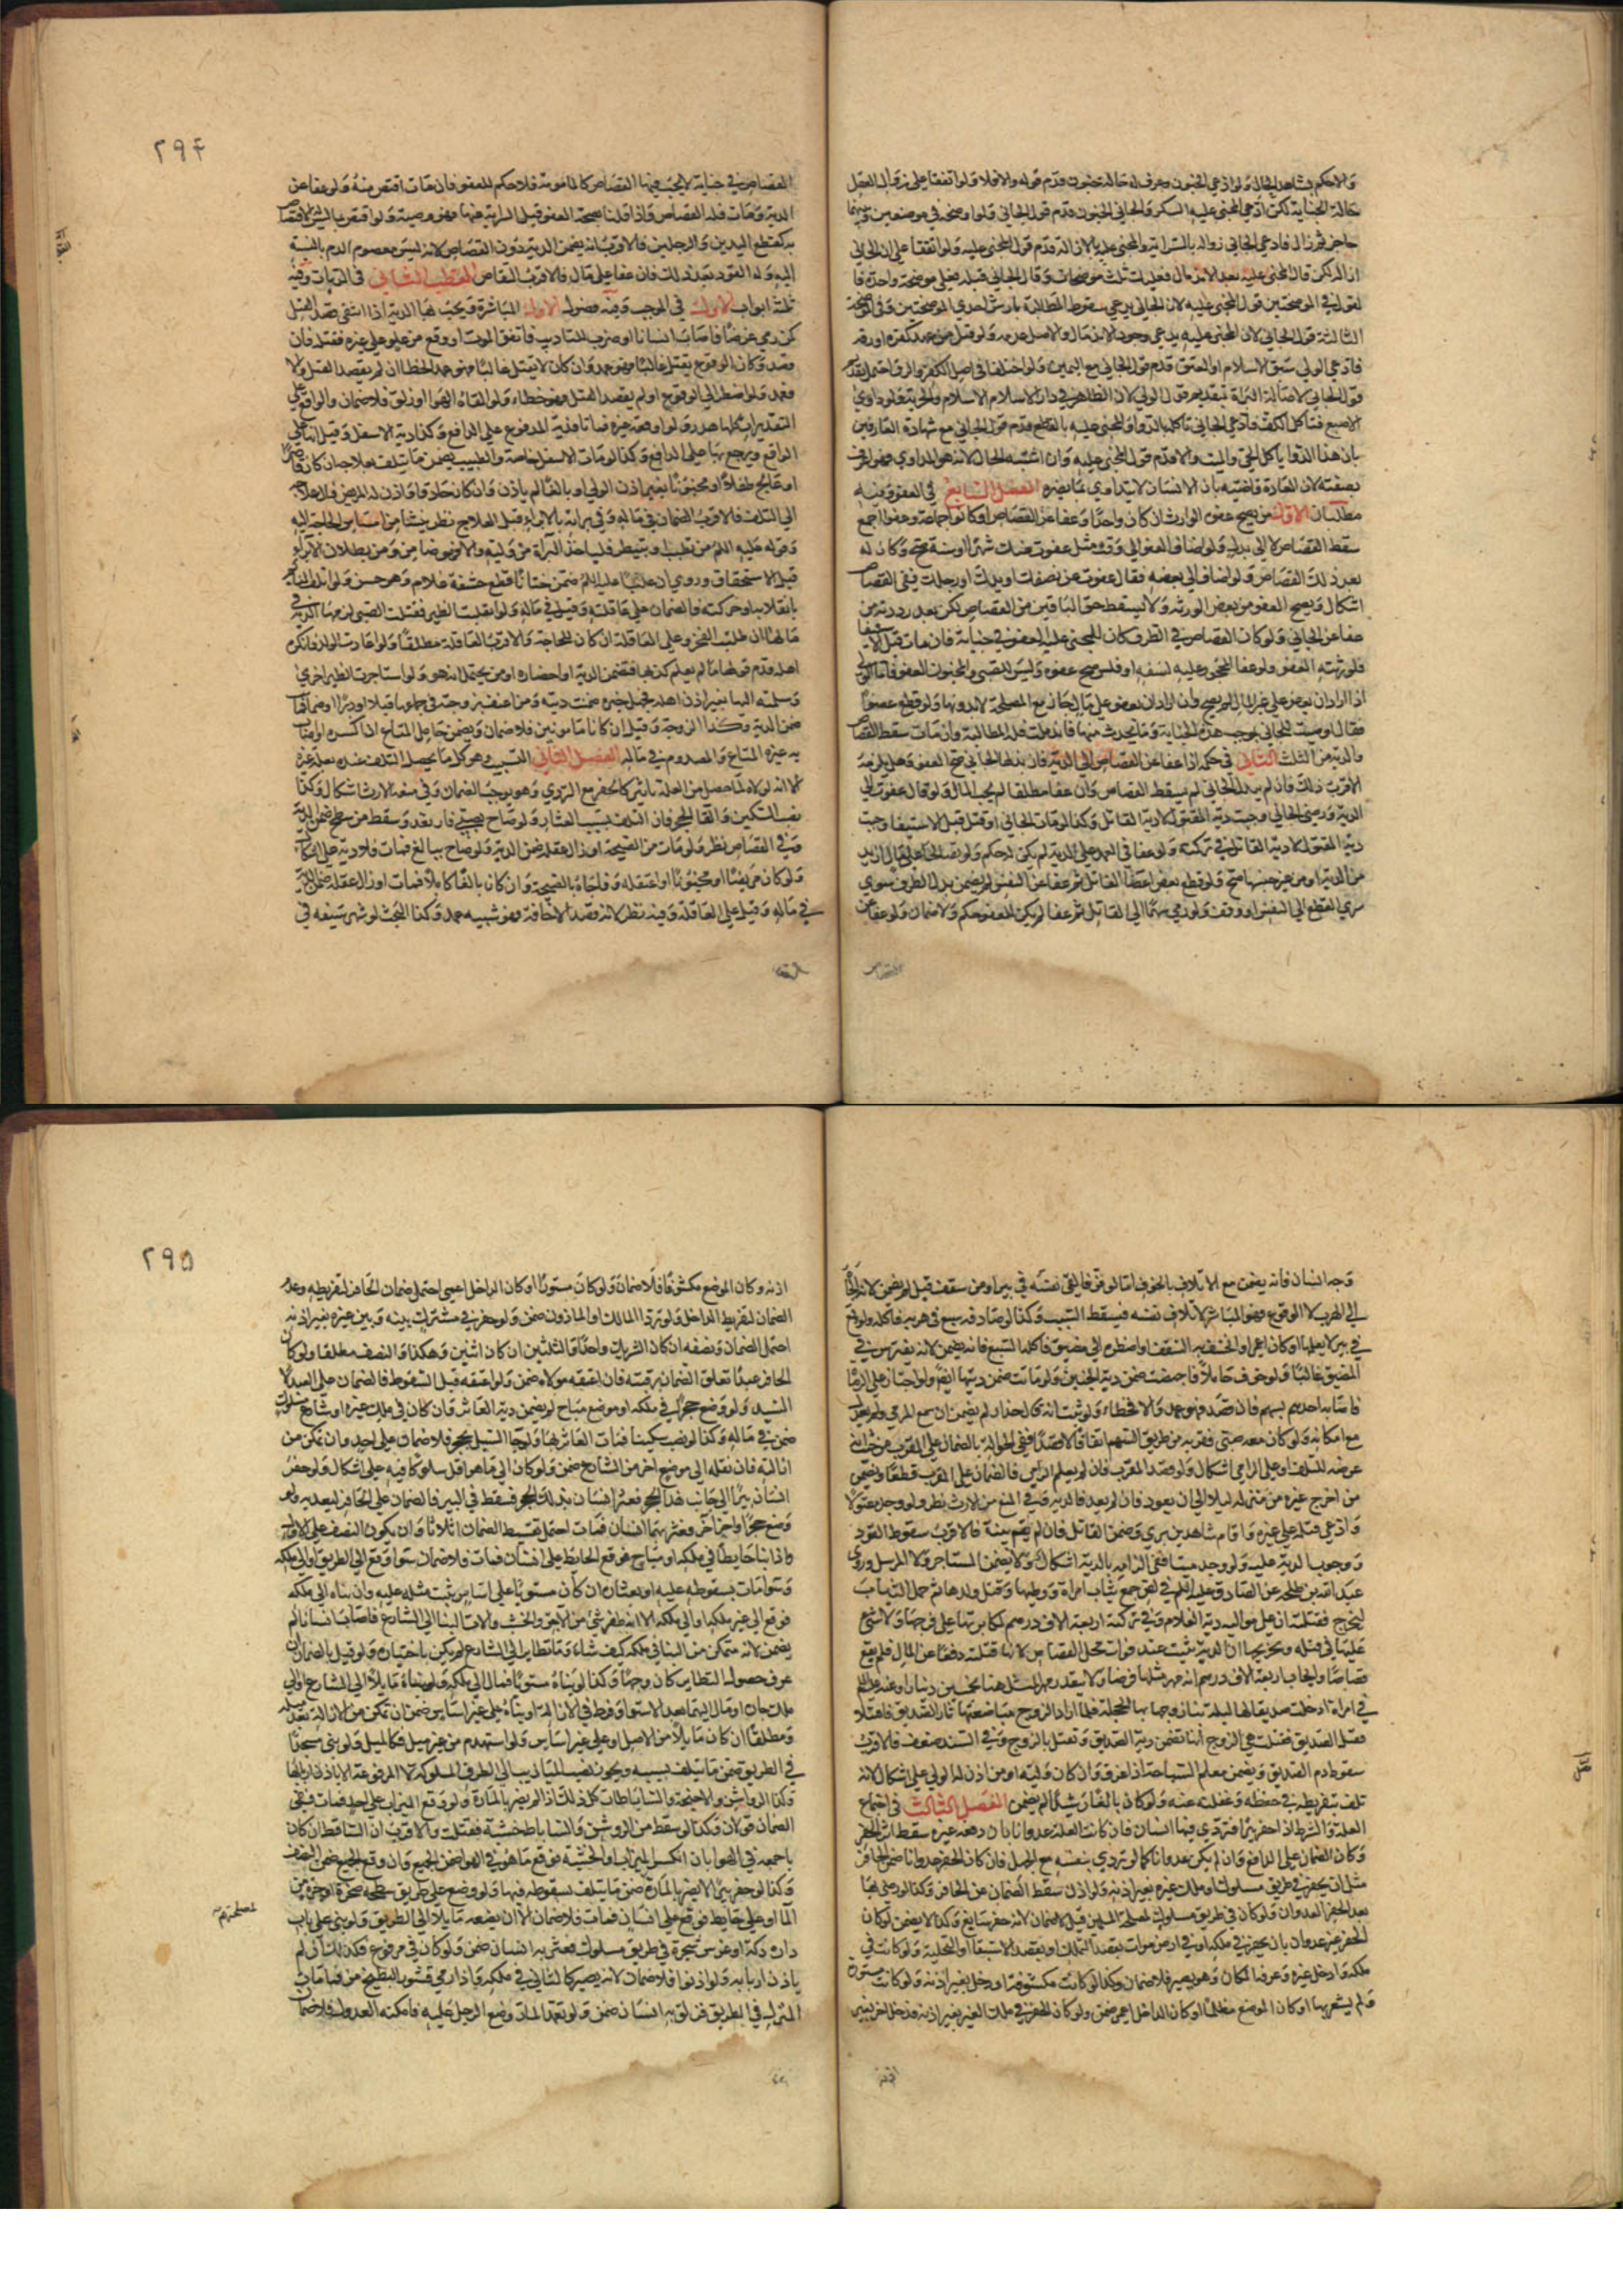 والاحكم بشاهد الحال ولو ادعى الجنون وعرف له حالة جنون قدم قوله والا فلا ولو اتفقا على زوال العقل
حالة الجناية لكن ادعى المجني عليه السكر والجاني الجنون قدم قول الجاني ولو اوضحه في موضعين وبينهما
حاجز ثم زال فادعى الجاني زواله بالسراية والمجني عليه بالازالة قدم قول المجني عليه ولو اتفقا على ان الجاني
ازاله لكن قال المجني عليه بعد الاندمال فعليك ثلث موضحات وقال الجاني قبله فعلي موضحة واحدة فا
لقول في الموضحتين قول المجني عليه لان الجاني يدعي سقوط المطالبة بارش احدى الموضحتين وفي الموضحة
الثالثة قول الجاني لان المجني عليه يدعي وجود الاندمال والاصل عدمه ولو قتل من عهد كفره او رقه
فادعى الولي سبق الاسلام او العتق قدم قول الجاني مع اليمين ولو اختلفا في اصل الكفر والرق احتمل تقديم
قول الجاني لاصالة البراة وتقديم قول الولي لان الظاهر في دار الاسلام الاسلام والحرية ولو داوى
الاصبع فتاكل الكف فادعى الجاني تاكله بالدواء والمجني عليه بالقطع قدم قول الجاني مع شهادة العارفين
بان هذا الدوا ياكل الحي والميت والا قدم قول المجني عليه وان اشتبه الحال لانه هو المداوي فهو اعرف
بصفته لان العادة قاضية بان الانسان لا يتداوى بما يضره الفصل السابع في العفو وفيه
مطلبان الاول من يصح عفوه الوارث ان كان واحدا وعفا عن القصاص او كانوا جماعة وعفوا اجمع
سقط القصاص لا الى بدل ولو اضاف العفو الى وقت مثل عفوت عنك شهرا او سنة صح وكان له
بعد ذلك القصاص ولو اضاف الى بعضه فقال عفوت عن نصفك او يدك او رجلك ففي القصاص
اشكال ويصح العفو من بعض الورثة ولا يسقط حق الباقين من القصاص لكن بعد رد دية من
عفا عن الجاني ولو كان القصاص في الطرف كان للمجني عليه العفو في جنايه فان مات قبل الاستيفا
فلورثته العفو ولو عفا المحجور عليه لسفه او فلس صح عفوه وليس للصبي والمجنون العفو فاما الولي
اذا اراد ان يعفو على غير مال لم يصح وان اراد ان يعفو على مال جاز مع المصلحة لا بدونها ولو قطع عضوا
فقال اوصيت للجاني بموجب هذه الجناية وما يحدث منها فاندملت فله المطالبة وان مات سقط القصاص
والدية من الثلث الثاني في حكمه اذا عفا عن القصاص الى الدية فان بذلها الجاني صح العفو وهل يلزمه
الاقرب ذلك فان لم يبذل الجاني لم يسقط القصاص وان عفا مطلقا لم يجب المال ولو قال عفوت الى
الدية ورضى الجاني وجبت دية المقتول لا دية القاتل وكذا لو مات الجاني او قتل قبل الاستيفا وجبت
دية المقتول لا دية القاتل في تركته ولو عفا في العمد على الدية لم يكن له حكم ولو رضا الجاني على مال ازيد
من الدية او من غير جنسها صح ولو قطع بعض اعضا القاتل ثم عفا عن النفس لم يضمن بدل الطرف سوى
سرى القطع الى النفس او وقف ولو رمى سهما الى القاتل ثم عفا لم يكن للعفو حكم ولا ضمان ولو عفا عن
القصاص
٢٩٤
القصاص في جناية لا يجب فيها القصاص كالمامومة فلا حكم للعفو فان مات اقتص منه ولو عفا عن
الدية ومات فله القصاص واذا قلنا بصحة العفو قبل السراية عنها فهو وصية ولو اقتص بما ليس الاقتصاص
به كقطع اليدين والرجلين فالاقرب انه يضمن الدية دون القصاص لانه ليس معصوم الدم بالنسبة
اليه وله القود بعد ذلك فان عفا على مال فالاقرب التقاص القطب الثاني في الديات وفيه
ثلثة ابواب الاول في الموجب وفيه فصول الاول المباشرة ويجب بها الدية اذا انتفى قصد القتل
كمن رمى غرضا فاصاب انسانا او ضرب للتاديب فاتفق الموت او وقع من علو على غيره فقتله فان
قصد وكان الوقوع يقتل غالبا فهو عمد وان كان لا يقتل غالبا فهو عمد الخطا ان لم يقصد القتل ولا
فعمد ولو اضطر الى الوقوع او لم يقصد القتل فهو خطاء ولو القاه الهوا او زلق فلا ضمان والواقع على
التقديرات كلها هدر ولو اوقعه غيره فماتا فدية المدفوع على الدافع وكذا دية الاسفل وقيل انها على
الواقع ويرجع بها على الدافع وكذا لو مات الاسفل خاصة والطبيب يضمن ما يتلف بعلاجه ان كان قاصرا
او عالج طفلا او مجنونا بغير اذن الولي او بالغا لم ياذن وان كان حاذقا واذن له المريض فآل علاجه
الى التلف فالاقرب الضمان في ماله وفي براته بالابراء قبل العلاج نظر ينشا من امساس الحاجة اليه
وقوله عليه السلم من تطبب او تبيطر فلياخذ البراة من وليه والا فهو ضامن ومن بطلان الابراء
قبل الاستحقاق وروي ان عليا عليه السلم ضمن ختانا قطع حشفة غلام وهو حسن ولو اتلف النائم
بانقلابه او حركته فالضمان على عاقلته وقيل في ماله ولو انقلبت الظير فقتلت الصبي لزمها الدية في
مالها ان طلبت الفخر وعلى العاقلة ان كان للحاجة والاقرب العاقلة مطلقا ولو اعادت الولد فانكره
اهله قدم قولها ما لم يعلم كذبها فتضمن الدية او احضاره او من يحتمل انه هو ولو استاجرت الظير اخرى
وسلمته اليها بغير اذن اهله فجهل خبره ضمنت ديته ومن اعنف بزوجته في جماعها قبلا او دبرا او ضما فماتت
ضمن الدية وكذا الزوجة وقيل ان كانا مامونين فلا ضمان ويضمن حامل المتاع اذا كسره او اصاب
به غيره المتاع والمصدوم في ماله الفصل الثاني التسبيب وهو كل ما يحصل التلف عنده بعلة غيره
الا انه لولاه لما حصل من العلة تاثير كالحفر مع التردي وهو يوجب الضمان وفي منعه الارث اشكال وكذا
نصب السكين والقا الحجر فان التلف بسبب العثار ولو صاح بصبي فارتعد وسقط من سطح ضمن الدية
وفي القصاص نظر ولو مات من الصيحة او زال عقله ضمن الدية ولو صاح ببالغ فمات فلا دية على اشكال
ولو كان مريضا او مجنونا او اعتقله وفاجاه بالصيحة وان كان بالغا كاملا فمات او زال عقله ضمن الدية
في ماله وقيل على العاقلة وفيه نظر لانه قصد الاخافة فهو شبيه عمد وكذا البحث لو شهر سيفه في
وجه انسان فانه يضمن مع الاتلاف بالخوف اما لو فر فالقى نفسه في بير او من سقف قيل لم يضمن لانه الجأه
الى الهرب لا الوقوع فهو المباشر لاتلاف نفسه فيسقط التسبيب وكذا لو صادفه سبع في هربه فاكله ولو وقع
في بير لا يعلمها او كان اعمى او انخسف به السقف او اضطره الى مضيق فاكله السبع فانه يضمن لانه يفترس في
المضيق غالبا ولو خوف حاملا فاجهضت ضمن دية الجنين ولو ماتت ضمن ديتها ايضا ولو اجتاز على الرماة
فاصابه احدهم بسهم فان قصد فهو عمد والا فخطاء ولو ثبت انه قال حذار لم يضمن ان سمع المرمي ولم يعدل
مع امكانه ولو كان معه صبي فقربه من طريق السهم اتفاقا لا قصدا ففي الحوالة بالضمان على المقرب من حيث انه
عرضه للتلف او على الرامي اشكال ولو قصد المقرب فان لم يعلم الرامي فالضمان على المقرب قطعا ويضمن
من اخرج غيره من منزله ليلا الى ان يعود فان لم يعد فالدية وفي المنع من الارث نظر ولو وجد مقتولا
وادعى قتله على غيره واقام شاهدين بري وضمن القاتل فان لم يقم بينة فالاقرب سقوط القود
ووجوب الدية عليه ولو وجد ميتا ففي الزامه بالدية اشكال ولا يضمن المستاجر ولا المرسل وروى
عبد الله بن طلحه عن الصادق عليه السلم في لص جمع ثياب امراة ووطيها وقتل ولدها ثم حمل الثياب
ليخرج فقتلته ان على مواليه دية الغلام وفي تركته اربعة الاف درهم لمكابرتها على فرجها ولا شي
عليها في قتله وتخريجها ان الدية تثبت عند فوات محل القصاص لانها قتلته دفعا عن المال فلم يقع
قصاصا وايجاب اربعة الاف درهم انه مهر مثلها فرضا ولا يتقدر مهر المثل هنا بخمسين دينارا وعنه عليه السلم
في امراة ادخلت صديقا لها ليلة بناء زوجها بها الحجلة فلما اراد الزوج مباضعتها ثار الصديق فاقتتلا
فقتل الصديق فقتلت هي الزوج انها تضمن دية الصديق وتقتل بالزوج وفي السند ضعف فالاقرب
سقوط دم الصديق ويضمن معلم السباحة اذا غرق وان كان وليه او من اذن له الولي على اشكال لانه
تلف بتفريطه في حفظه وغفلته عنه ولو كان بالغا رشيدا لم يضمن الفصل الثالث في اجتماع
العلة والشرط اذا حفر بيرا فتردى فيها انسان فان كانت العلة عدوانا بان دفعه غيره سقط اثر الحفر
وكان الضمان على الدافع وان لم يكن عدوانا كما لو تردى بنفسه مع الجهل فان كان الحفر عدوانا ضمن الحافر
مثل ان يحفر في طريق مسلوك او ملك غيره بغير اذنه ولو اذن سقط الضمان عن الحافر وكذا لو رضي بها
بعد الحفر العدوان ولو كان في طريق مسلوك لمصلحة المسلمين قيل لا ضمان لانه حفر سايغ وكذا لا يضمن لو كان
الحفر غير عدوان بان يحفر في ملكه او في ارض موات بقصد التملك او بقصد الاستيفا او التخلية ولو كانت في
ملكه وادخل غيره وعرفه المكان وهو بصير فلا ضمان وكذا لو كانت مكشوفة او دخل بغير اذنه ولو كانت مستورة
ولم يشعر بها او كان الموضع مظلما او كان الداخل اعمى ضمن ولو كان الحفر في ملك الغير بغير اذنه فدخل اخر بغير
اذنه
٢٩٥
اذنه وكان الموضع مكشوفا فلا ضمان ولو كان مستورا او كان الداخل اعمى احتمل ضمان الحافر لتفريطه وعدم
الضمان لتفريط الداخل ولو تردى المالك او الماذون ضمن ولو حفر في مشترك بينه وبين غيره بغير اذنه
احتمل الضمان ونصفه ان كان الشريك واحدا والثلثين ان كان اثنين وهكذا والنصف مطلقا ولو كان
الحافر عبدا تعلق الضمان برقبته فان اعتقه مولاه ضمن ولو اعتقه قبل السقوط فالضمان على العبد لا
السيد ولو وضع حجرا في ملكه او موضع مباح لم يضمن دية العاثر وان كان في ملك غيره او شارع مسلوك
ضمن في ماله وكذا لو نصب سكينا فمات العاثر بها ولو جا السيل بحجر فلا ضمان على احد وان تمكن من
ازالته فان نقله الى موضع اخر من الشارع ضمن ولو كان الى ما هو اقل سلوكا فيه على اشكال ولو حفر
انسان بيرا الى جانب هذا الحجر فعثر انسان بذلك الحجر فسقط في البير فالضمان على الحافر لتعديه ولو
وضع حجرا واخر اخر فعثر بهما انسان فمات احتمل تقسيط الضمان اثلاثا وان يكون النصف على الاول
واذا بنا حايطا في ملكه او مباح فوقع الحايط على انسان فمات فلا ضمان سوا وقع الى الطريق او الى ملكه
وسوا مات بسقوطه عليه او بعثاره ان كان مستويا على اساس يثبت مثله عليه وان بناه الى ملكه
فوقع الى غير ملكه او الى ملكه الا انه طفر شي من الاجر والخشب والات البنا الى الشارع فاصاب انسانا لم
يضمن لانه متمكن من البنا في ملكه كيف شاء وما تطاير الى الشارع لم يكن باختياره ولو قيل بالضمان ان
عرف حصول التطاير كان وجها وكذا لو بناه مستويا فمال الى ملكه ولو بناه مايلا الى الشارع او الى
ملك جاره او مال اليهما بعد الاستوا وفرط في الازالة او بناه على غير اساس ضمن ان تمكن من الازالة بعد ميله
ومطلقا ان كان مايلا من الاصل او على غير اساس ولو استهدم من غير ميل فكالميل ولو بنى مسجدا
في الطريق ضمن ما يتلف بسببه ويجوز نصب الميازيب الى الطرق المسلوكة لا المرفوعة الا باذن اربابها
وكذا الرواشن والاجنحة والساباطات كل ذلك اذا لم يضر بالمارة ولو وقع الميزاب على احد فمات ففي
الضمان قولان وكذا لو سقط من الروشن والساباط خشبة فقتلت والاقرب ان الساقط ان كان
باجمعه في الهوا بان انكسر الميزاب او الخشبة فوقع ما هو في الهوا ضمن الجميع وان وقع الجميع ضمن النصف
وكذا لو حفر بيرا لا يضر بالمارة ضمن ما يتلف بسقوطه فيها ولو وضع على طريق سطحه صخرة او جرة من
الما او على حايط فوقع على انسان فمات فلا ضمان الا ان يضعه مايلا الى الطريق ولو بنى على باب
داره دكة او غرس شجرة في طريق مسلوك فعثر به انسان ضمن ولو كان في مرفوع فكذلك ان لم
ياذن اربابه ولو اذنوا فلا ضمان لانه يصير كالثاني في ملكه واذا رمى قشور البطيخ من قمامات
المنزل في الطريق فزلق به انسان ضمن ولو تعمد المار وضع الرجل عليه فامكنه العدول فلا ضمان